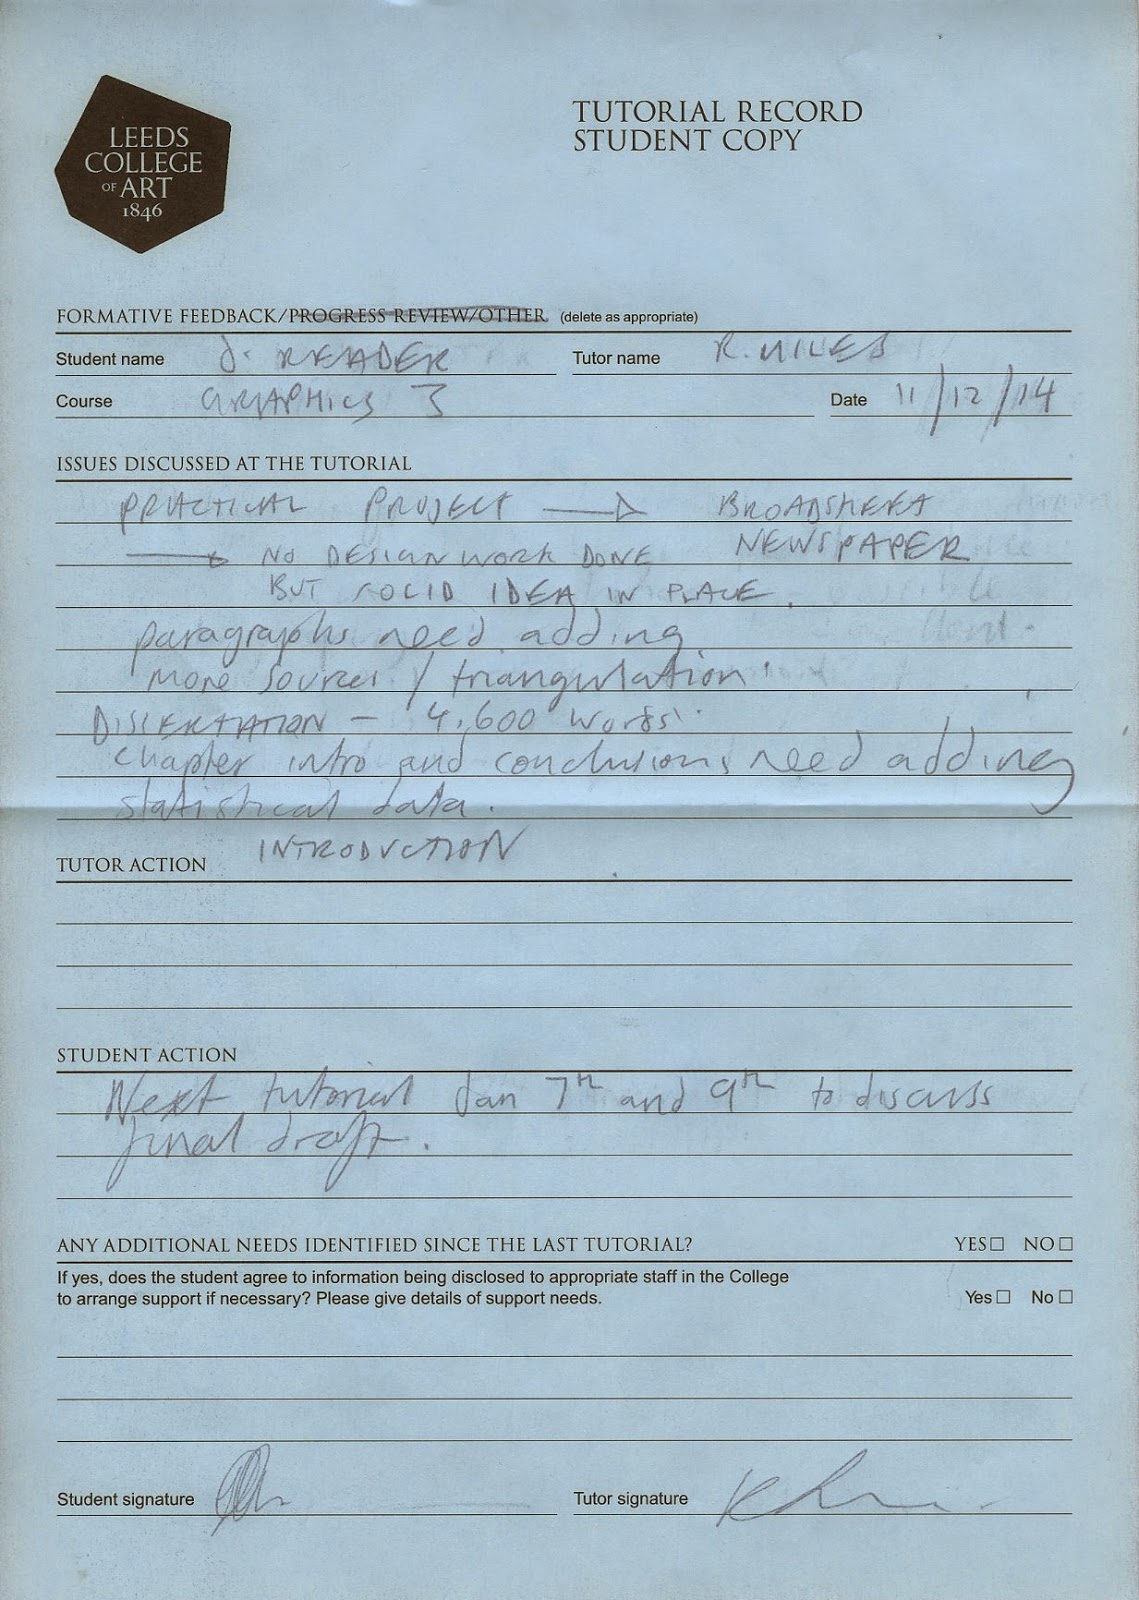 LEEDS
COLLEGE
OF ART
1846
TUTORIAL RECORD
STUDENT COPY
FORMATIVE FEEDBACK/PROGRESS REVIEW/OTHER (delete as appropriate)
Student name J. READER Tutor name R. MILES
Course GRAPHICS 3 Date 11/12/14
ISSUES DISCUSSED AT THE TUTORIAL
PRACTICAL PROJECT → BROADSHEET
NEWSPAPER
→ NO DESIGN WORK DONE
BUT SOLID IDEA IN PLACE.
paragraphs need adding
more sources / triangulation
DISSERTATION - 4,600 words.
Chapter intro and conclusions need adding
statistical data.
INTRODUCTION
TUTOR ACTION
STUDENT ACTION
Next tutorial Jan 7th and 9th to discuss
final draft.
ANY ADDITIONAL NEEDS IDENTIFIED SINCE THE LAST TUTORIAL? YES NO
If yes, does the student agree to information being disclosed to appropriate staff in the College
to arrange support if necessary? Please give details of support needs. Yes No
Student signature Tutor signature